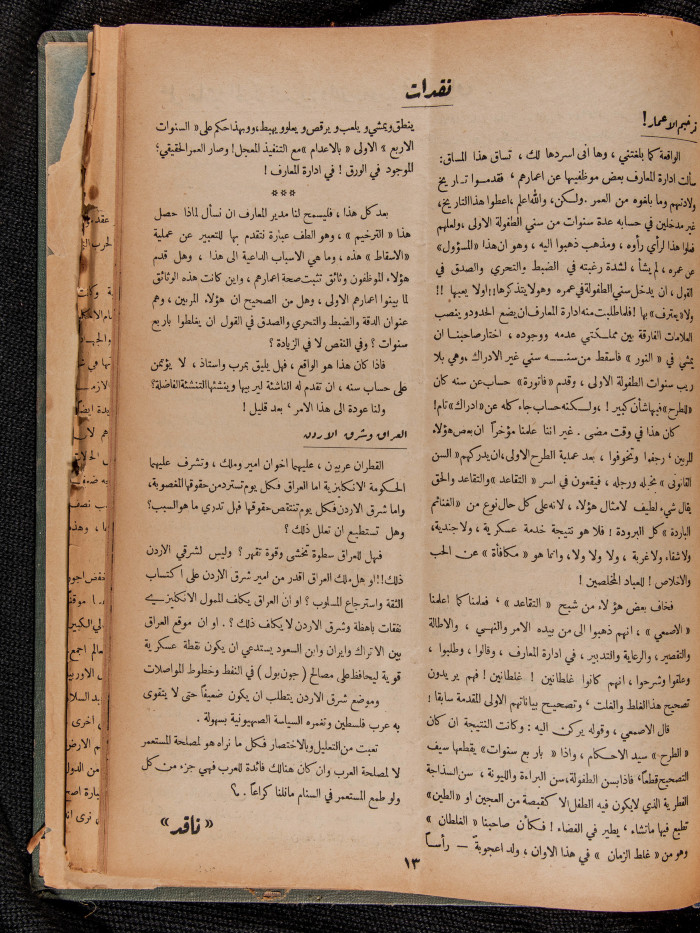 نقدات
ترخيم الاعمار!
الواقعة كما بلغتني، وها انى اسردها لك، تساق هذا المساق:
سألت ادارة المعارف بعض موظفيها عن اعمارهم، فقدموا تاريخ
ولادتهم وما بلغوه من العمر. ولكن، والله اعلم، اعطوا هذا التاريخ،
غير مدخلين في حسابه عدة سنوات من سني الطفولة الاولى، ولعلهم
فعلوا هذا لرأي رأوه، ومذهب ذهبوا اليه، وهو ان هذا «المسؤول»
عن عمره، لم يشأ، لشدة رغبته في الضبط والتحري والصدق في
القول، ان يدخل سني الطفولة في عمره وهو لا يتذكرها!! ولا يعيها!!
ولا «يعترف» بها! فلما طلبت منه ادارة المعارف ان يضع الحدود وينصب
العلامات الفارقة بين مملكتي عدمه ووجوده، اختار صاحبنا ان
يمشي في «النور» فاسقط من سنـــه سني غير الادراك، وهي بلا
ريب سنوات الطفولة الاولى، وقدم «فاتورة» حساب عن سنه كان
«للطرح» فيها شأن كبير!، ولكنه حساب جاء كله عن «ادراك» تام!
كان هذا في وقت مضى. غير اننا علمنا مؤخراً ان بعض هؤلاء
المربين، رجفوا وتخوفوا، بعد عملية الطرح الاولى، ان يدركهم «السن
القانوني» بخيله ورجله، فيقعون في اسر «التقاعد» والتقاعد والحق
يقال شيء لطيف لامثال هؤلاء، لانه على كل حال نوع من «الغنائم
الباردة» كل البرودة! فلا هو نتيجة خدمة عسكرية، ولا جندية،
ولا شقاء ولا غربة، ولا ولا ولا، وانما هو «مكافأة» عن الحب
والاخلاص! للعباد المخلصين!
فخاف بعض هؤلاء من شبح «التقاعد»، فعلمنا كما اعلمنا
«الاصمعي»، انهم ذهبوا الى من بيده الامر والنهي، والاطالة
والتقصير، والرعاية والتدبير، في ادارة المعارف، وقالوا، وطلبوا،
وعلقوا وشرحوا، انهم كانوا غلطانين! غلطانين! فهم يريدون
تصحيح هذا الغلط والغلت، وتصحيح بياناتهم الاولى المقدمة سابقا!
قال الاصمعي، وقوله يركن اليه: وكانت النتيجة ان كان
«الطرح» سيد الاحكام، واذا «باربع سنوات» يقطعها سيف
التصحيح قطعاً، فاذا بسن الطفولة، سن البراءة والليونة، سن السذاجة
الفطرية الذي لا يكون فيه الطفل الا كقبصة من العجين او «الطين»
تطبع فيها ماتشاء، يطير في الفضاء! فكأن صاحبنا «الغلطان»
وهو من «غلط الزمان» في هذا الاوان، ولد اعجوبةً — رأساً
ينطق ويمشي ويلعب ويرقص ويعلو ويهبط، وبهذا حكم على «السنوات
الاربع» الاولى «بالاعدام» مع التنفيذ المعجل! وصار العمر الحقيقي؛
الموجود في الورق! في ادارة المعارف!
***
بعد كل هذا، فليسمح لنا مدير المعارف ان نسأل لماذا حصل
هذا «الترخيم»، وهو الطف عبارة نتقدم بها للتعبير عن عملية
«الاسقاط» هذه، وما هي الاسباب الداعية الى هذا، وهل قدم
هؤلاء الموظفون وثائق تثبت صحة اعمارهم، واين كانت هذه الوثائق
لما بينوا اعمارهم الاولى، وهل من الصحيح ان هؤلاء المربين، وهم
عنوان الدقة والضبط والتحري والصدق في القول ان يغلطوا باربع
سنوات؟ وفي النقص لا في الزيادة؟
فاذا كان هذا هو الواقع، فهل يليق بمرب واستاذ، لا يؤتمن
على حساب سنه، ان تقدم له الناشئة ليربيها وينشئها التنشئة الفاضلة؟
ولنا عودة الى هذا الامر، بعد قليل!
العراق وشرق الاردن
القطران عربيان، عليهما اخوان امير وملك، وتشرف عليهما
الحكومة الانكليزية اما العراق فكل يوم تسترد من حقوقها المغصوبة،
واما شرق الاردن فكل يوم تنتقص حقوقها فهل تدري ما هو السبب؟
وهل تستطيع ان تعلل ذلك؟
فهل للعراق سطوة تخشى وقوة تقهر؟ وليس لشرقي الاردن
ذلك!! او هل ملك العراق اقدر من امير شرق الاردن على اكتساب
الثقة واسترجاع المسلوب؟ او ان العراق يكلف الممول الانكليزي
نفقات باهظة وشرق الاردن لا يكلف ذلك؟. او ان موقع العراق
بين الاتراك وايران وابن السعود يستدعي ان يكون نقطة عسكرية
قوية ليحافظ على مصالح (جون بول) في النفط وخطوط المواصلات
وموضع شرق الاردن يتطلب ان يكون ضعيفاً حتى لا يتقوى
به عرب فلسطين وتغمره السياسة الصهيونية بسهولة.
تعبت من التعليل وبالاختصار فكل ما نراه هو لمصلحة المستعمر
لا لمصلحة العرب وان كان هنالك فائدة للعرب فهي جزء من كل
ولو طمع المستعمر في السنام مانلنا كراعاً.؟
«ناقد»
١٣